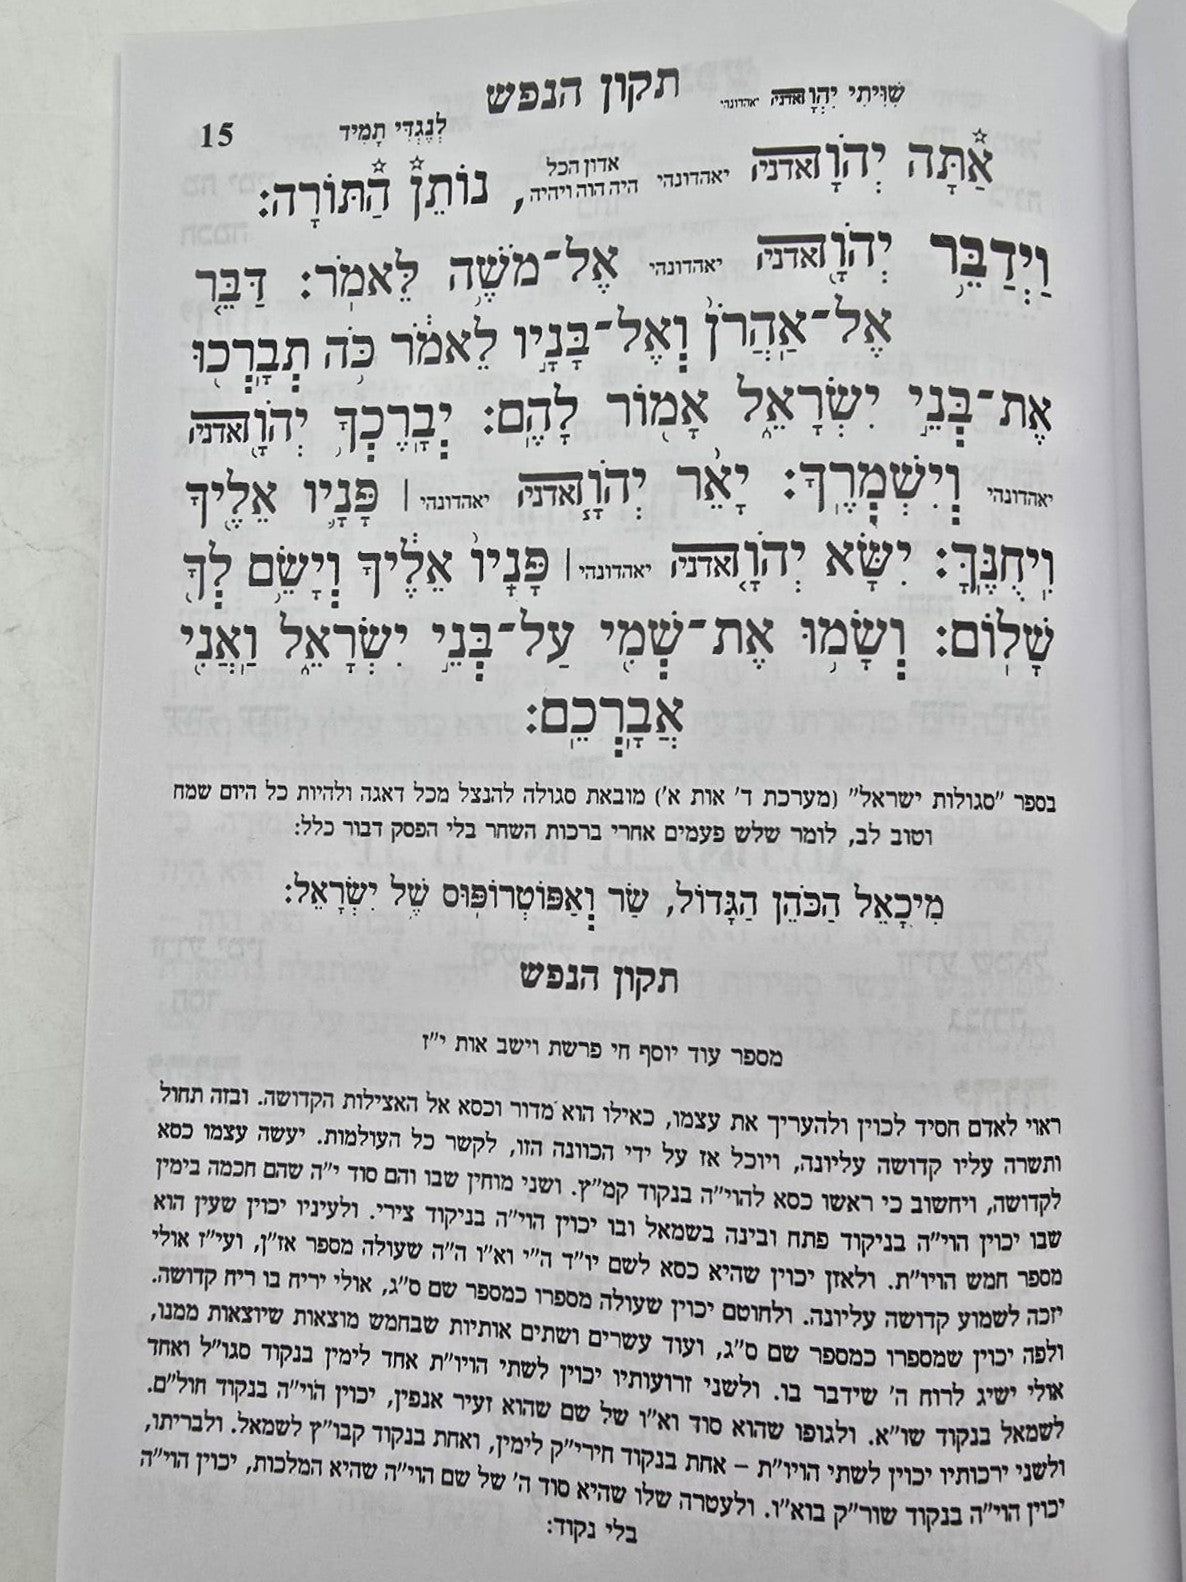 שִׁוִּיתִי יְהֹוָאדניה יאהדונהי תקון הנפש
לְנֶגְדִּי תָמִיד 15
אַתָּה יְהֹוָאדניה יאהדונהי אדון הכל היה הוה ויהיה, נוֹתֵן הַתּוֹרָה:
וַיְדַבֵּ֥ר יְהֹוָ֖אדניה יאהדונהי אֶל־מֹשֶׁ֥ה לֵּאמֹֽר: דַּבֵּ֤ר
אֶֽל־אַהֲרֹן֙ וְאֶל־בָּנָ֣יו לֵאמֹ֔ר כֹּ֥ה תְבָרְכ֖וּ
אֶת־בְּנֵ֣י יִשְׂרָאֵ֑ל אָמ֖וֹר לָהֶֽם: יְבָרֶכְךָ֥ יְהֹוָ֖אדניה
יאהדונהי וְיִשְׁמְרֶֽךָ: יָאֵ֨ר יְהֹוָ֧אדניה יאהדונהי | פָּנָ֛יו אֵלֶ֖יךָ
וִֽיחֻנֶּֽךָּ: יִשָּׂ֨א יְהֹוָ֤אדניה יאהדונהי | פָּנָיו֙ אֵלֶ֔יךָ וְיָשֵׂ֥ם לְךָ֖
שָׁלֽוֹם: וְשָׂמ֥וּ אֶת־שְׁמִ֖י עַל־בְּנֵ֣י יִשְׂרָאֵ֑ל וַאֲנִ֖י
אֲבָרְכֵֽם:
בספר "סגולות ישראל" (מערכת ד' אות א') מובאת סגולה להנצל מכל דאגה ולהיות כל היום שמח
וטוב לב, לומר שלש פעמים אחרי ברכות השחר בלי הפסק דבור כלל:
מִיכָאֵל הַכֹּהֵן הַגָּדוֹל, שַׂר וְאַפּוֹטְרוֹפּוֹס שֶׁל יִשְׂרָאֵל:
תקון הנפש
מספר עוד יוסף חי פרשת וישב אות י"ז
ראוי לאדם חסיד לכוין ולהעריך את עצמו, כאילו הוא מדור וכסא אל האצילות הקדושה. ובזה תחול
ותשרה עליו קדושה עליונה, ויוכל אז על ידי הכוונה הזו, לקשר כל העולמות. יעשה עצמו כסא
לקדושה, ויחשוב כי ראשו כסא להוי"ה בנקוד קמ"ץ. ושני מוחין שבו והם סוד י"ה שהם חכמה בימין
שבו יכוין הוי"ה בניקוד פתח ובינה בשמאל ובו יכוין הוי"ה בניקוד צירי. ולעיניו יכוין שעין הוא
מספר חמש הויו"ת. ולאזן יכוין שהיא כסא לשם יו"ד ה"י וא"ו ה"ה שעולה מספר אז"ן, ועי"ז אולי
יזכה לשמוע קדושה עליונה. ולחוטם יכוין שעולה מספרו כמספר שם ס"ג, אולי יריח בו ריח קדושה.
ולפה יכוין שמספרו כמספר שם ס"ג, ועוד עשרים ושתים אותיות שבחמש מוצאות שיוצאות ממנו,
אולי ישיג לרוח ה' שידבר בו. ולשני זרועותיו יכוין לשתי הויו"ת אחד לימין בנקוד סגו"ל ואחד
לשמאל בנקוד שו"א. ולגופו שהוא סוד וא"ו של שם שהוא זעיר אנפין, יכוין הוי"ה בנקוד חול"ם.
ולשני ירכותיו יכוין לשתי הויו"ת – אחת בנקוד חירי"ק לימין, ואחת בנקוד קבו"ץ לשמאל. ולבריתו,
יכוין הוי"ה בנקוד שור"ק בוא"ו. ולעטרה שלו שהיא סוד ה' של שם הוי"ה שהיא המלכות, יכוין הוי"ה
בלי נקוד: